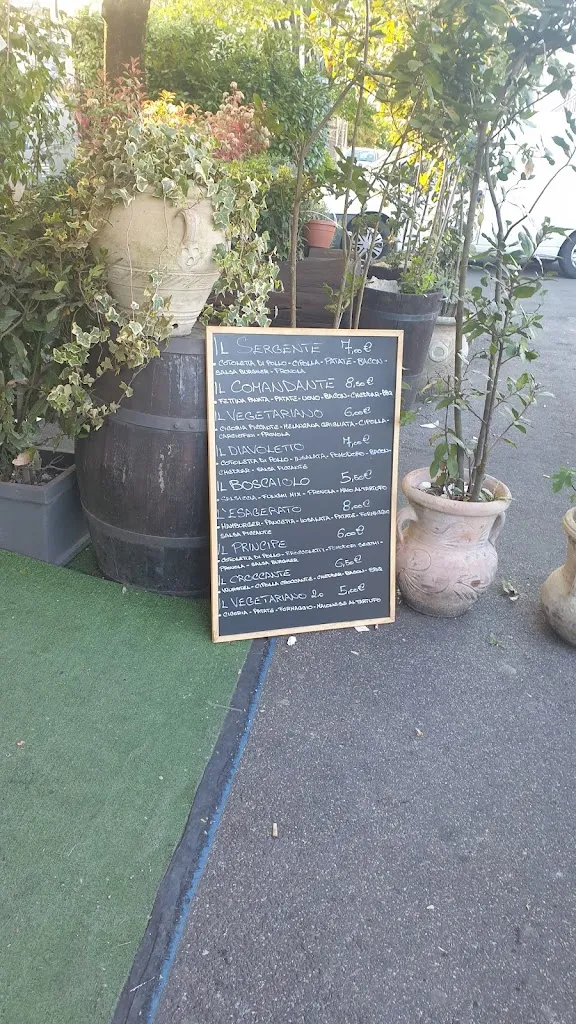 IL SERGENTE 7,00€
• COTOLETTA DI POLLO - CIPOLLA - PATATE - BACON -
SALSA BURGHER - PROVOLA
IL COMANDANTE 8,50€
• FETTINA PANATA - PATATE - UOVO - BACON - CHEDDAR - BBQ
IL VEGETARIANO 6,00€
• CICORIA PICCANTE - MELANZANA GRIGLIATA - CIPOLLA -
CARCIOFINI - PROVOLA
IL DIAVOLETTO 7,00€
• COTOLETTA DI POLLO - INSALATA - POMODORO - BACON -
CHEDDAR - SALSA PICCANTE
IL BOSCAIOLO 5,50€
• SALSICCIA - FUNGHI MIX - PROVOLA - MAIO AL TARTUFO
L'ESAGERATO 8,00€
• HAMBURGER - PANCETTA - INSALATA - PATATE - FORMAGGIO
SALSA PICCANTE
IL PRINCIPE 6,00€
• COTOLETTA DI POLLO - FRIGGITELLI - POMODORI SECCHI -
PROVOLA - SALSA BURGHER
IL CROCCANTE 6,50€
• WURSTEL - CIPOLLA CROCCANTE - CHEDDAR - BACON - BBQ
IL VEGETARIANO 2.0 5,00€
• CICORIA - PATATE - FORMAGGIO - MAIONESE AL TARTUFO